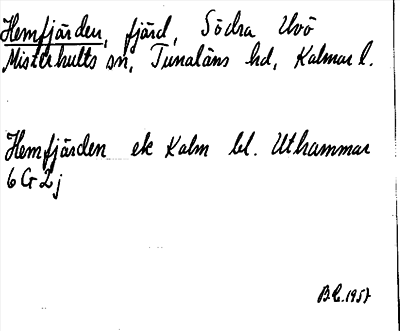 Hemfjärden, fjärd, Södra Uvö
Misterhults sn, Tunaläns hd, Kalmar l.
Hemfjärden ek Kalm bl. Uthammar
6 G 2 j
1957